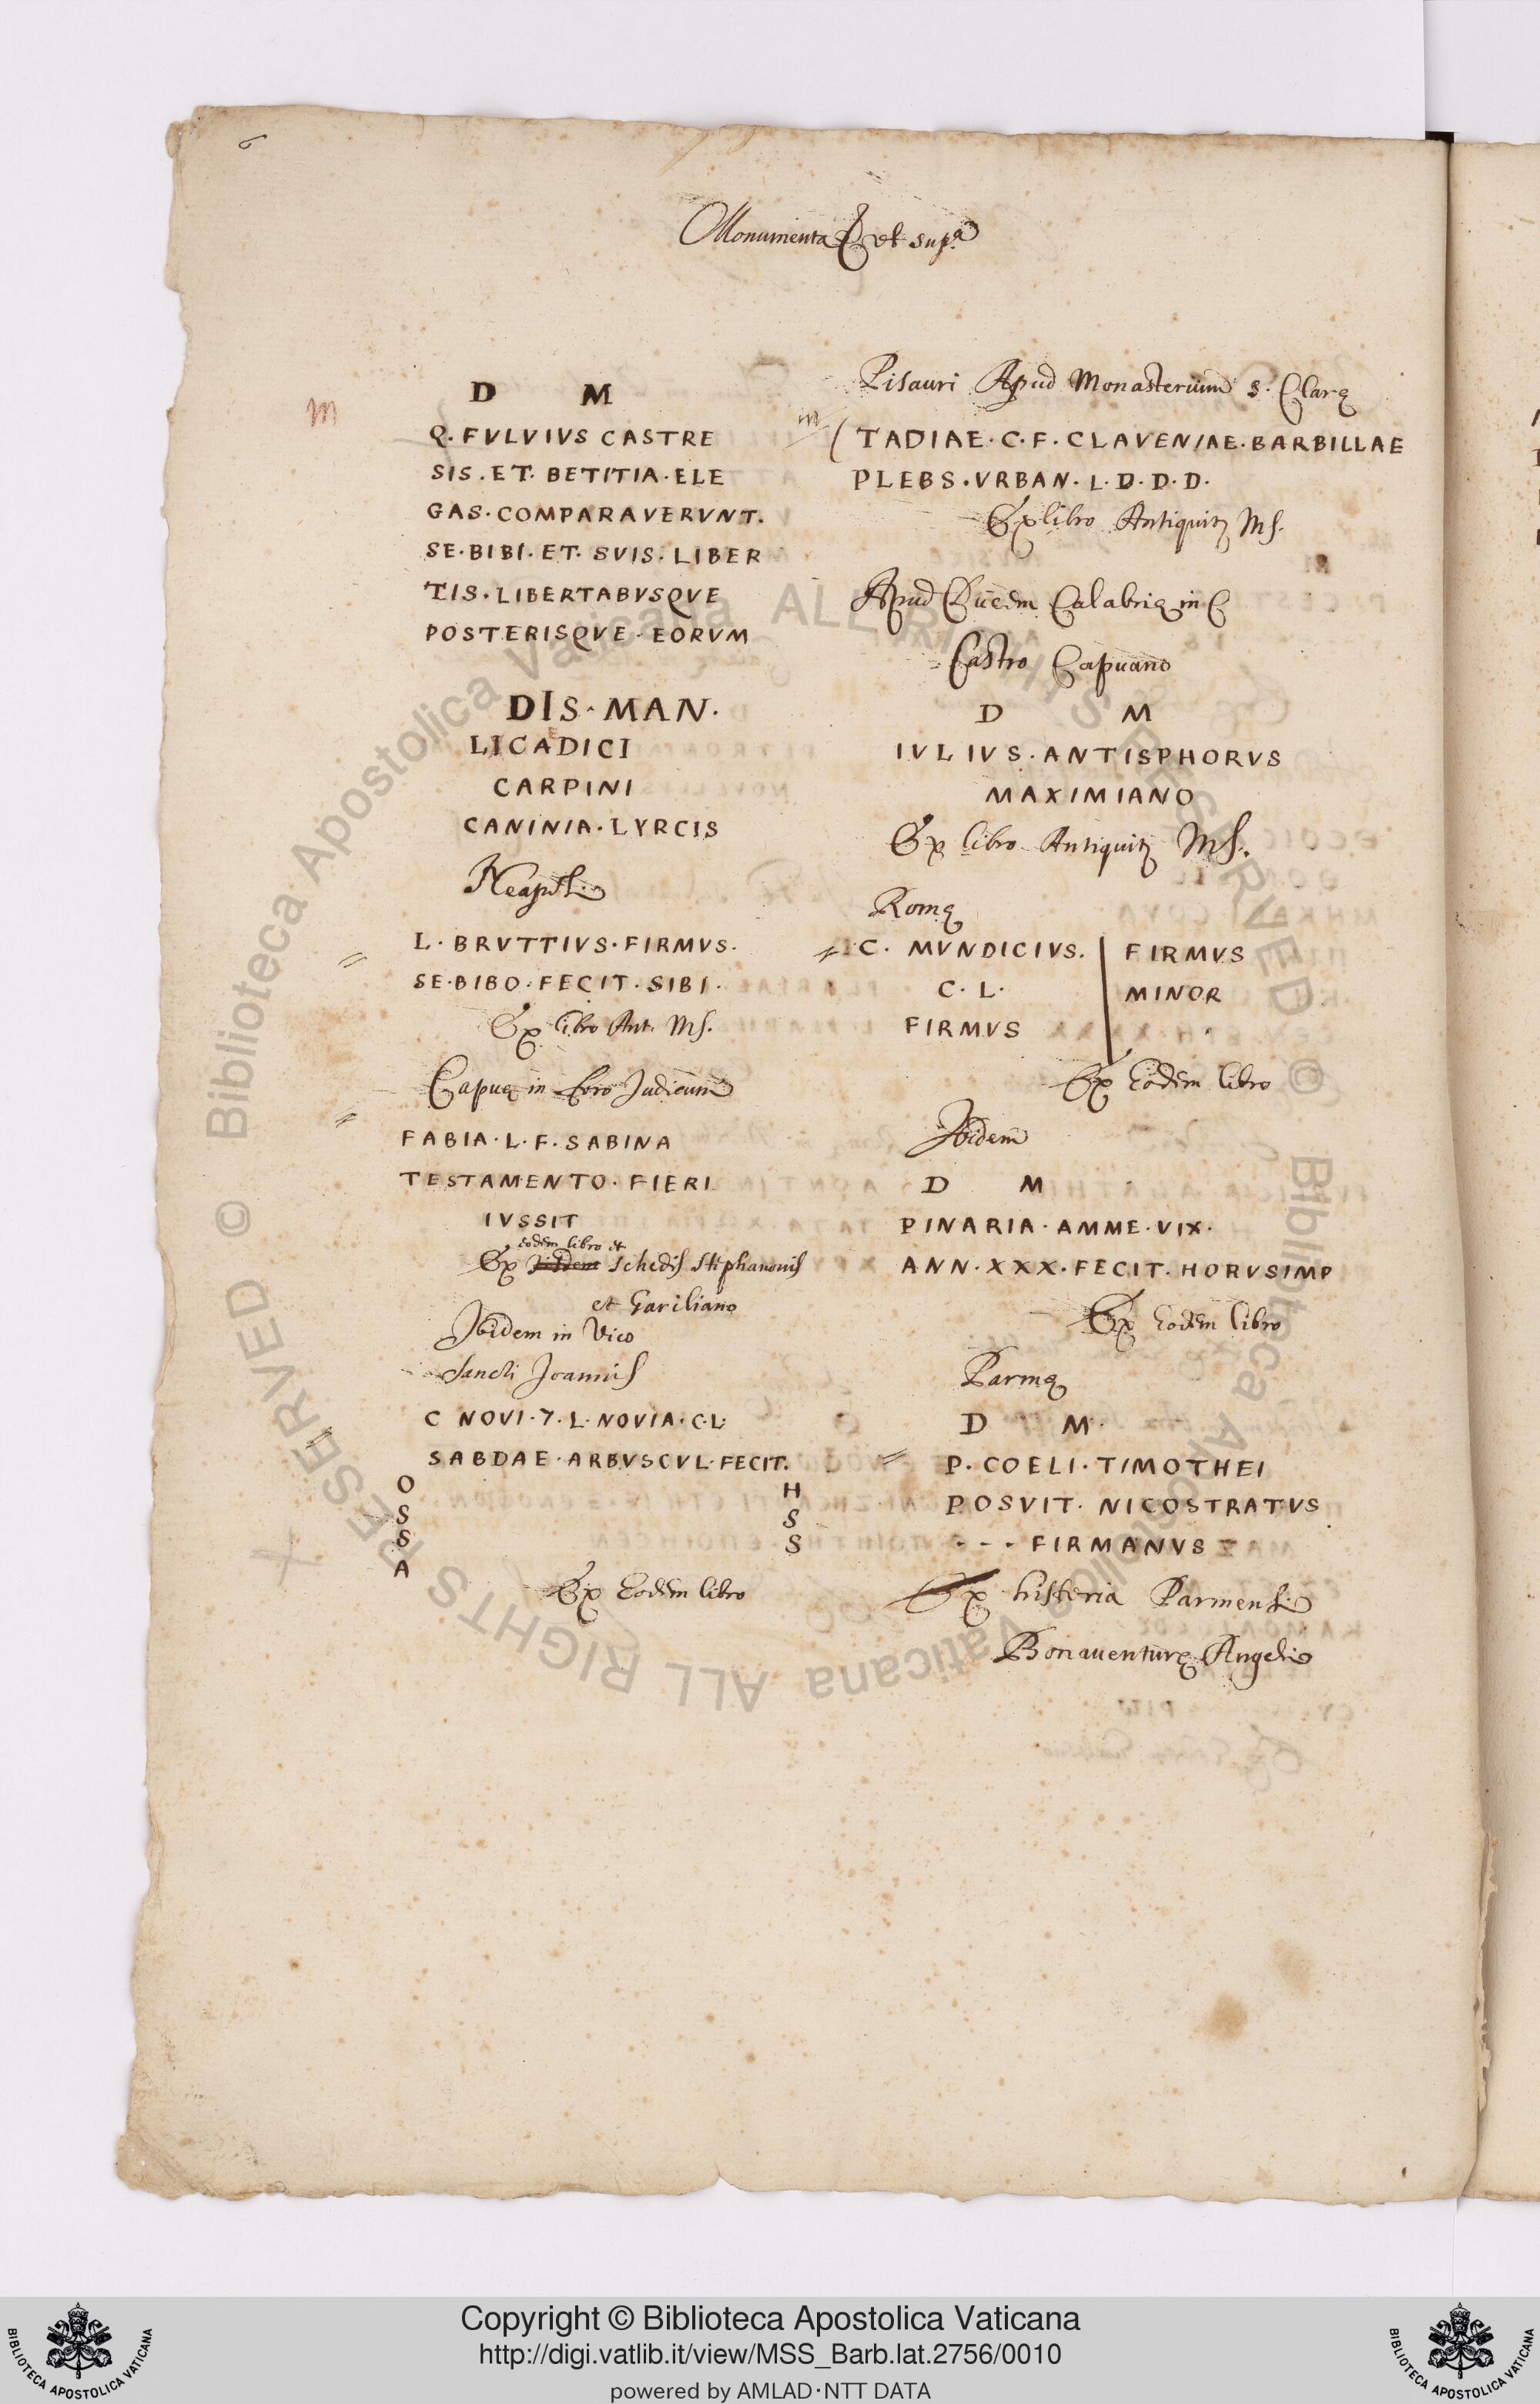 6
Monumenta & ut supª
D M
Q. FVLVIVS CASTRE
SIS. ET. BETITIA. ELE
GAS. COMPARAVERVNT.
SE. BIBI. ET. SVIS. LIBER
TIS. LIBERTABVSQVE
POSTERISQVE. EORVM
DIS. MAN.
LICADICI
CARPINI
CANINIA. LYRCIS
Neapoli
L. BRVTTIVS. FIRMVS.
SE. BIBO. FECIT. SIBI.
Ex libro Ant. Ms.
Capuę in foro Judicum
FABIA. L. F. SABINA
TESTAMENTO. FIERI
IVSSIT
eodem libro et
Ex Schedis Stephanonis
et Gariliano
Ibidem in Vico
Sancti Joannis
C NOVI. 7. L. NOVIA. C. L.
SABDAE. ARBVSCVL. FECIT.
O H
S S
S S
A
Ex Eodem libro
Pisauri Apud Monasterium S. Clarę
m
m
TADIAE. C. F. CLAVENIAE. BARBILLAE
PLEBS. VRBAN. L. D. D. D.
Ex libro Antiquit Ms.
Apud Ducem Calabrię in
Castro Capuano
D M
IVLIVS. ANTISPHORVS
MAXIMIANO
Ex libro Antiquit Ms.
Romę
C. MVNDICIVS. | FIRMVS
C. L. | MINOR
FIRMVS
Ex Eodem libro
Ibidem
D M
PINARIA. AMME. VIX.
ANN. XXX. FECIT. HORVSIMP
Ex Eodem libro
Parmę
D M.
P. COELI. TIMOTHEI
POSVIT. NICOSTRATVS
- - - FIRMANVS
Ex historia Parmensi
Bonauenturę Angeli
© Biblioteca Apostolica Vaticana ALL RIGHTS RESERVED © Biblioteca Apostolica Vaticana ALL RIGHTS RESERVED
Copyright © Biblioteca Apostolica Vaticana
http://digi.vatlib.it/view/MSS_Barb.lat.2756/0010
powered by AMLAD·NTT DATA
BIBLIOTECA APOSTOLICA VATICANA
BIBLIOTECA APOSTOLICA VATICANA